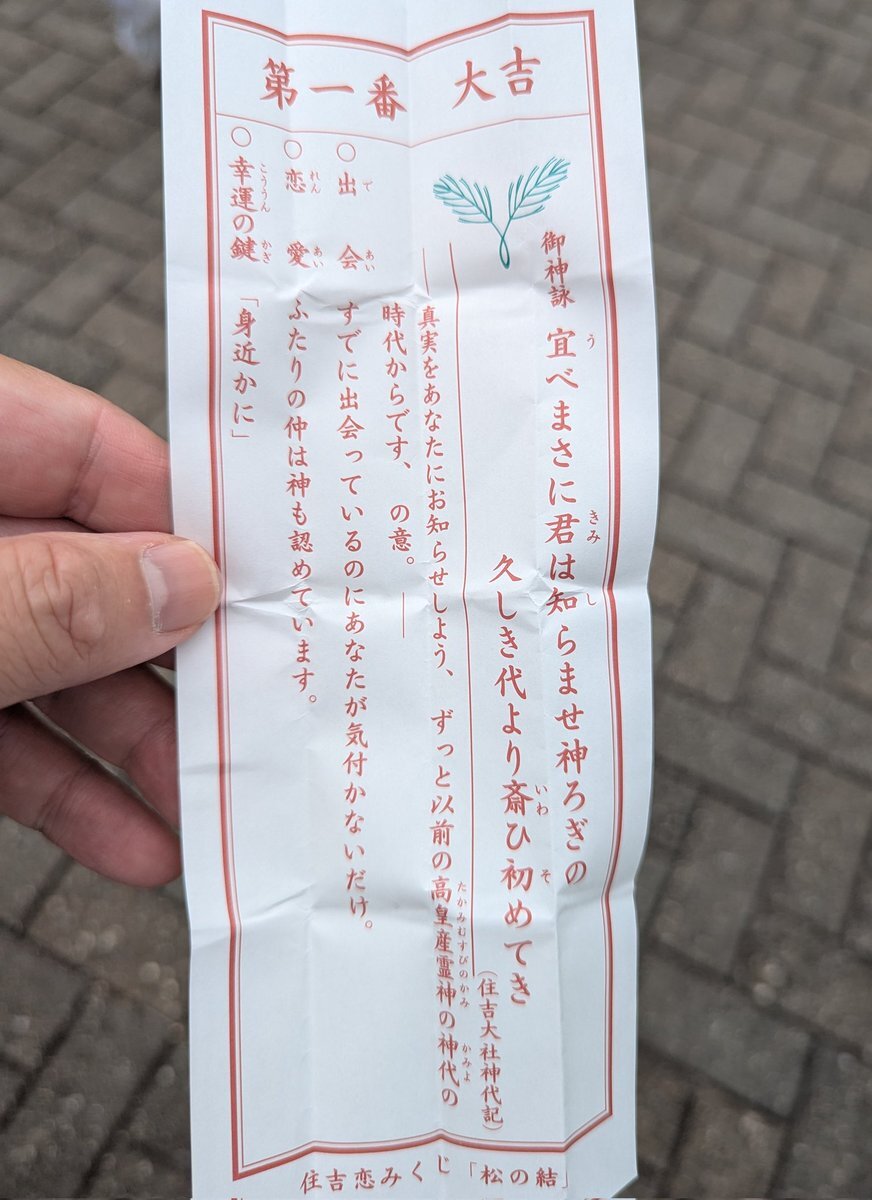 第一番 大吉
御神詠 宜べまさに君は知らませ神ろぎの
久しき代より斎ひ初めてき
(住吉大社神代記)
真実をあなたにお知らせしよう、ずっと以前の高皇産霊神の神代の
時代からです、の意。
○出会 すでに出会っているのにあなたが気付かないだけ。
○恋愛 ふたりの仲は神も認めています。
○幸運の鍵 「身近かに」
住吉恋みくじ「松の結」